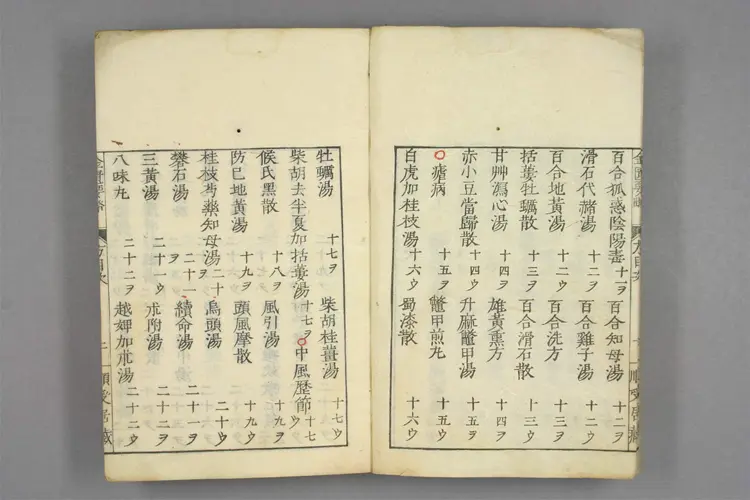 百合狐惑陰陽毒 十一ヲ 百合知母湯 十二ヲ
滑石代赭湯 十二ヲ 百合雞子湯 十二ウ
百合地黃湯 十二ウ 百合洗方 十三ヲ
括蔞牡蠣散 十三ヲ 百合滑石散 十三ウ
甘艸瀉心湯 十四ヲ 雄黃熏方 十四ヲ
赤小豆當歸散 十四ウ 升麻鼈甲湯 十五ヲ
○瘧病 十五ヲ 鼈甲煎丸 十五ウ
白虎加桂枝湯 十六ウ 蜀漆散 十六ウ
牡蠣湯 十七ヲ 柴胡桂薑湯 十七ウ
柴胡去半夏加括蔞湯 十七ヲ ○中風歷節 十七ウ
侯氏黑散 十八ヲ 風引湯 十九ヲ
防已地黃湯 十九ヲ 頭風摩散 十九ウ
桂枝芍藥知母湯 二十ヲ 烏頭湯 二十ウ
礬石湯 二十一ヲ 續命湯 二十一ヲ
三黃湯 二十一ウ 朮附湯 二十二ヲ
八味丸 二十二ヲ 越婢加朮湯 二十二ウ
金匱要略 方目次 二 順受居藏